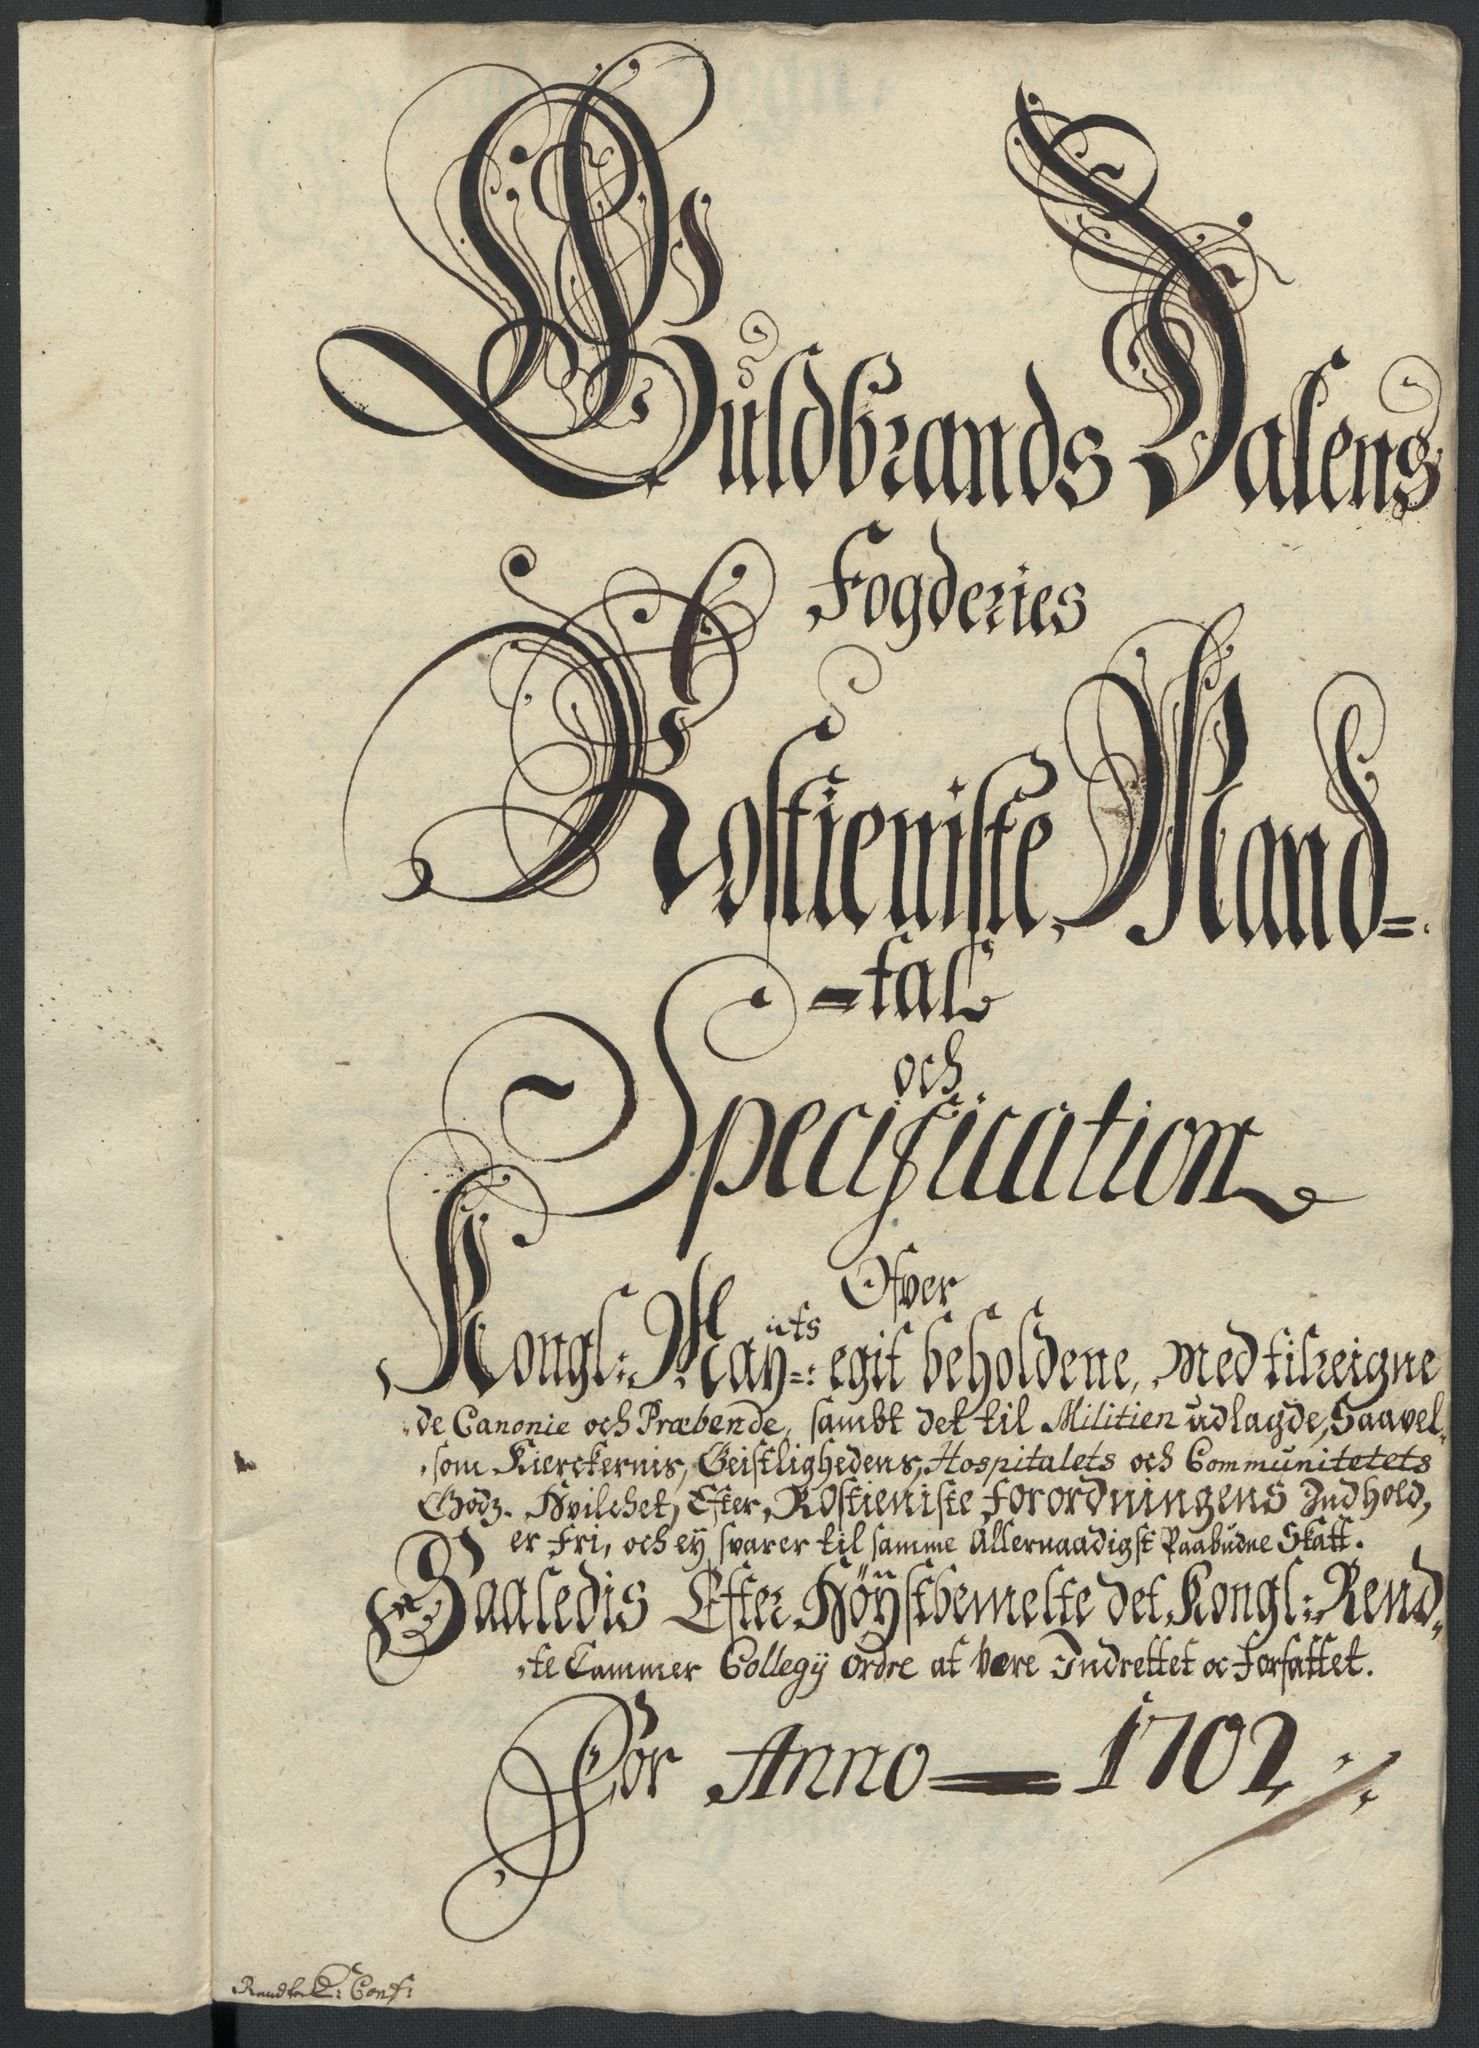 Guldbrands Dalens
Fogderies
Rostieniste Mand=
=tal
och
Specification
Ofver
Kongl: Maÿ=ts: egit beholdene, med tilreigne
de Canonie och Præbende, sambt det til Militien udlagde, Saavel=
som Kierckernis, Geistlighedens, Hospitalets och Communitetets
Godz. Hvilchet, Efter, Rostieniste Forordningens Indhold,
er fri, och eÿ svarer til samme Allernaadigst Paabudne Skatt.
Saaledis Efter Høÿstbemelte det Kongl: Rend
te Cammer Collegÿ Ordre at være Indrettet oc Forfattet.
For Anno 1702